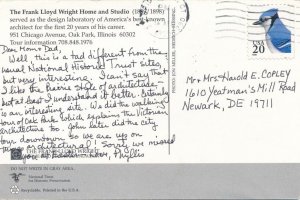 The Frank Lloyd Wright Home and Studio (1889/1898)
served as the design laboratory of America's best-known
architect for the first 20 years of his career.
951 Chicago Avenue, Oak Park, Illinois 60302
Tour information 708.848.1976
Dear Mom & Dad,
Well, this is a tad different from the
usual National Historic Trust sites,
but very interesting. I can't say that
I like the Prairie Style of architecture -
but at least I understand it better. Certainly
is an interesting site. We did the walking
tour of Oak Park, which explains the Victorian
architecture too. John later did the city
tour downtown so we are up on
architectural! Sorry we missed
Love, Phyllis
USA
20
Mr. & Mrs. Harold E. COPLEY
1610 Yeatman's Mill Road
Newark, DE 19711
THE FRANK LLOYD WRIGHT
DO NOT WRITE IN GRAY AREA.
National Trust
for Historic Preservation
Recyclable. Printed in the U.S.A.